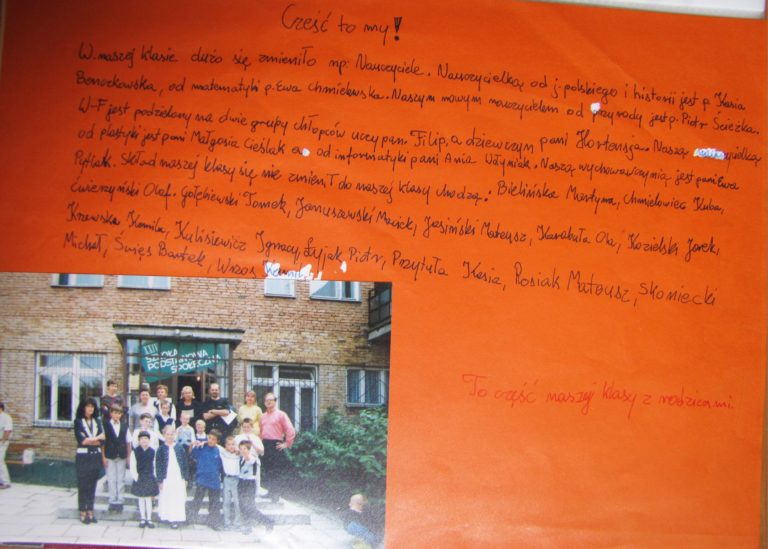 Cześć to my!
W naszej klasie dużo się zmieniło np: Nauczyciele. Nauczycielką od j. polskiego i historii jest p. Kasia
Benorkowska, od matematyki p. Ewa Chmielewska. Naszym nowym nauczycielem od przyrody jest p. Piotr Ścieżka.
W-F jest podzielony na dwie grupy chłopców uczy pan. Filip, a dziewczyn pani Hortensja. Naszą
od plastyki jest pani Małgosia Cieślak a od informatyki pani Ania Woźniak. Naszą wychowawczynią jest pani Ewa
Pytlak. Skład naszej klasy się nie zmienił do naszej klasy chodzą: Bielińska Martyna, Chmielowiec Kuba,
Ćwierzyński Olaf. Gołębiewski Tomek, Januszewski Maciek, Jasiński Mateusz, Karabuła Ola, Kozielski Jarek,
Krzewska Kamila, Kulisiewicz Ignacy, Łyjak Piotr, Przytuła Kasia, Rosiak Mateusz, Skoniecki
Michał, Święs Bartek, Wrzos
XXII
SZKOŁA
PODSTAWOWA
SPOŁECZNA
To część naszej klasy z rodzicami.